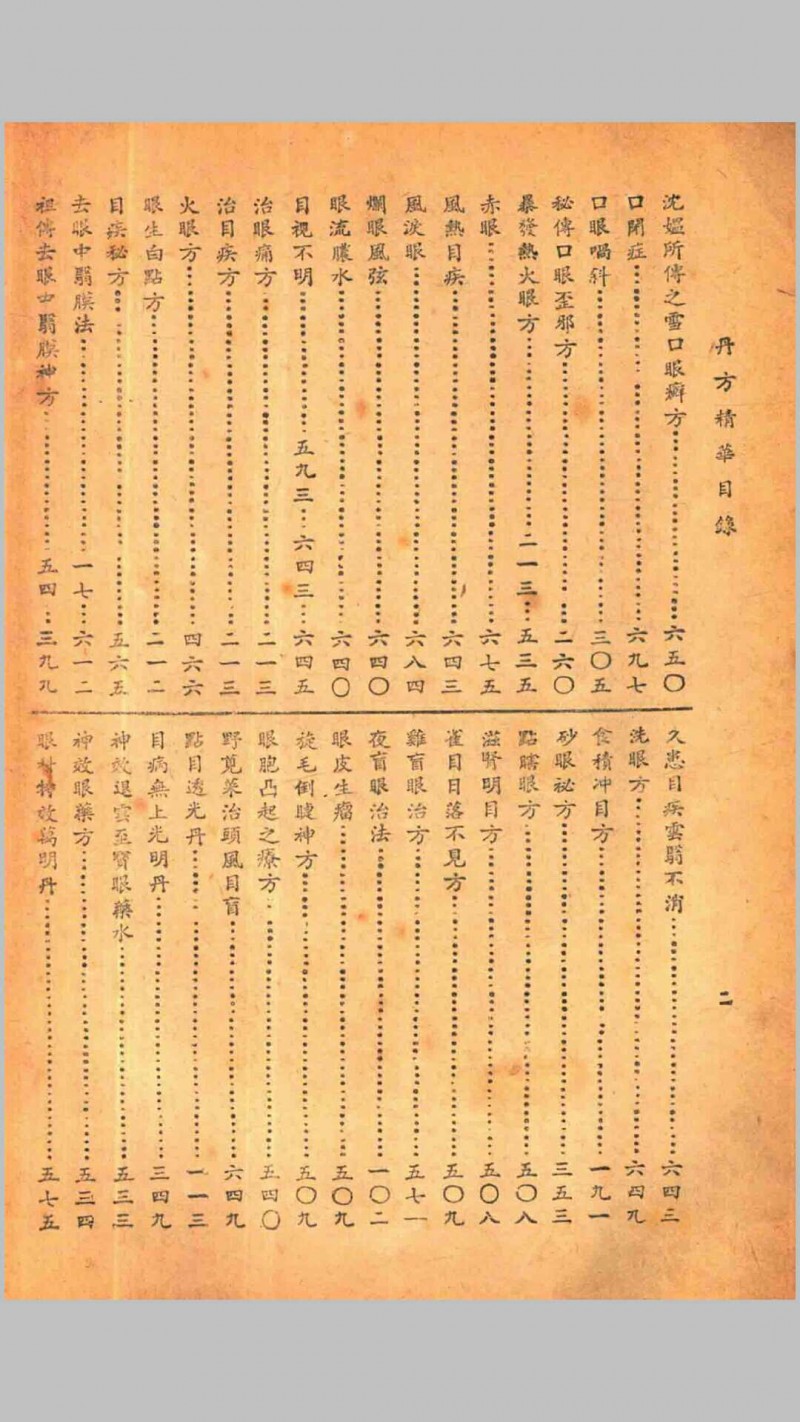 丹方精華目錄
二
沈媼所傳之雪口眼癬方……六五〇
口閉症……六九七
口眼喎斜……三〇五
秘傳口眼歪邪方……二六〇
暴發熱火眼方……二一三…五三五
赤眼……六七五
風熱目疾……六四三
風淚眼……六八四
爛眼風弦……六四〇
眼流膿水……六四〇
目視不明……五九三…六四三…六四五
治眼痛方……二一三
治目疾方……二一三
火眼方……四六六
眼生白點方……二一二
目疾秘方……五六五
去眼中翳膜法……一七…六一二
祖傳去眼中翳膜神方……五四…三九九
久患目疾雲翳不消……六四三
洗眼方……六四九
食積冲目方……一九一
砂眼秘方……三五三
點瞎眼方……五〇八
滋腎明目方……五〇八
雀目日落不見方……五〇九
雞盲眼治方……五七一
夜盲眼治法……一〇二
眼皮生瘤……五〇九
旋毛倒睫神方……五〇九
眼胞凸起之療方……五四〇
野莧菜治頭風目盲……六四九
點目透光丹……一一三
目病無上光明丹……三四九
神效退雲至寶眼藥水……五三三
神效眼藥方……五三四
眼科特效萬明丹……五七五